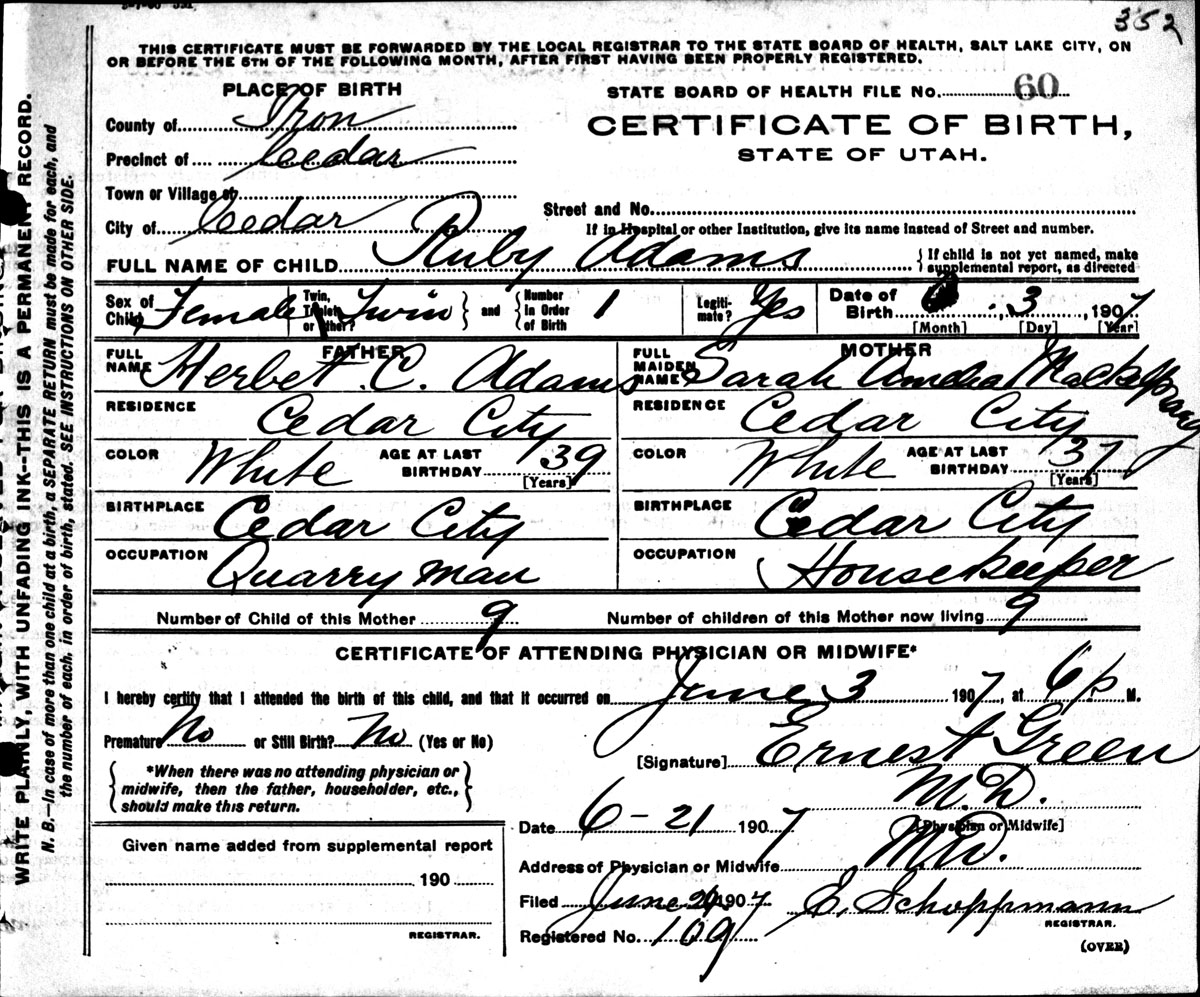 352
THIS CERTIFICATE MUST BE FORWARDED BY THE LOCAL REGISTRAR TO THE STATE BOARD OF HEALTH, SALT LAKE CITY, ON
OR BEFORE THE 5TH OF THE FOLLOWING MONTH, AFTER FIRST HAVING BEEN PROPERLY REGISTERED.
PLACE OF BIRTH
STATE BOARD OF HEALTH FILE NO. 60
County of Iron
CERTIFICATE OF BIRTH,
STATE OF UTAH.
Precinct of Cedar
Town or Village of
City of Cedar
Street and No.
If in Hospital or other Institution, give its name instead of Street and number.
FULL NAME OF CHILD Ruby Adams
If child is not yet named, make
supplemental report, as directed
Sex of Child Female Twin, Triplet or other? Twin and Number in Order of Birth 1 Legitimate? Yes Date of Birth 3, 1907
[Month] [Day] [Year]
FATHER
FULL NAME Herbert C. Adams
RESIDENCE Cedar City
COLOR White AGE AT LAST BIRTHDAY 39
[Years]
BIRTHPLACE Cedar City
OCCUPATION Quarry man
MOTHER
FULL MAIDEN NAME Sarah Amelia Mackelprang
RESIDENCE Cedar City
COLOR White AGE AT LAST BIRTHDAY 37
[Years]
BIRTHPLACE Cedar City
OCCUPATION Housekeeper
Number of Child of this Mother 9 Number of children of this Mother now living 9
CERTIFICATE OF ATTENDING PHYSICIAN OR MIDWIFE*
I hereby certify that I attended the birth of this child, and that it occurred on June 3 1907, at 6 p M.
Premature No or Still Birth? No (Yes or No)
[Signature] Ernest Green
M.D.
*When there was no attending physician or
midwife, then the father, householder, etc.,
should make this return.
Date 6-21 1907
[Physician or Midwife]
Given name added from supplemental report
190
REGISTRAR.
Address of Physician or Midwife M.D.
Filed June 1907 E. Schoppmann
REGISTRAR.
Registered No. 109
(OVER)
WRITE PLAINLY, WITH UNFADING INK--THIS IS A PERMANENT RECORD.
N. B.—In case of more than one child at a birth, a SEPARATE RETURN must be made for each, and
the number of each, in order of birth, stated. SEE INSTRUCTIONS ON OTHER SIDE.